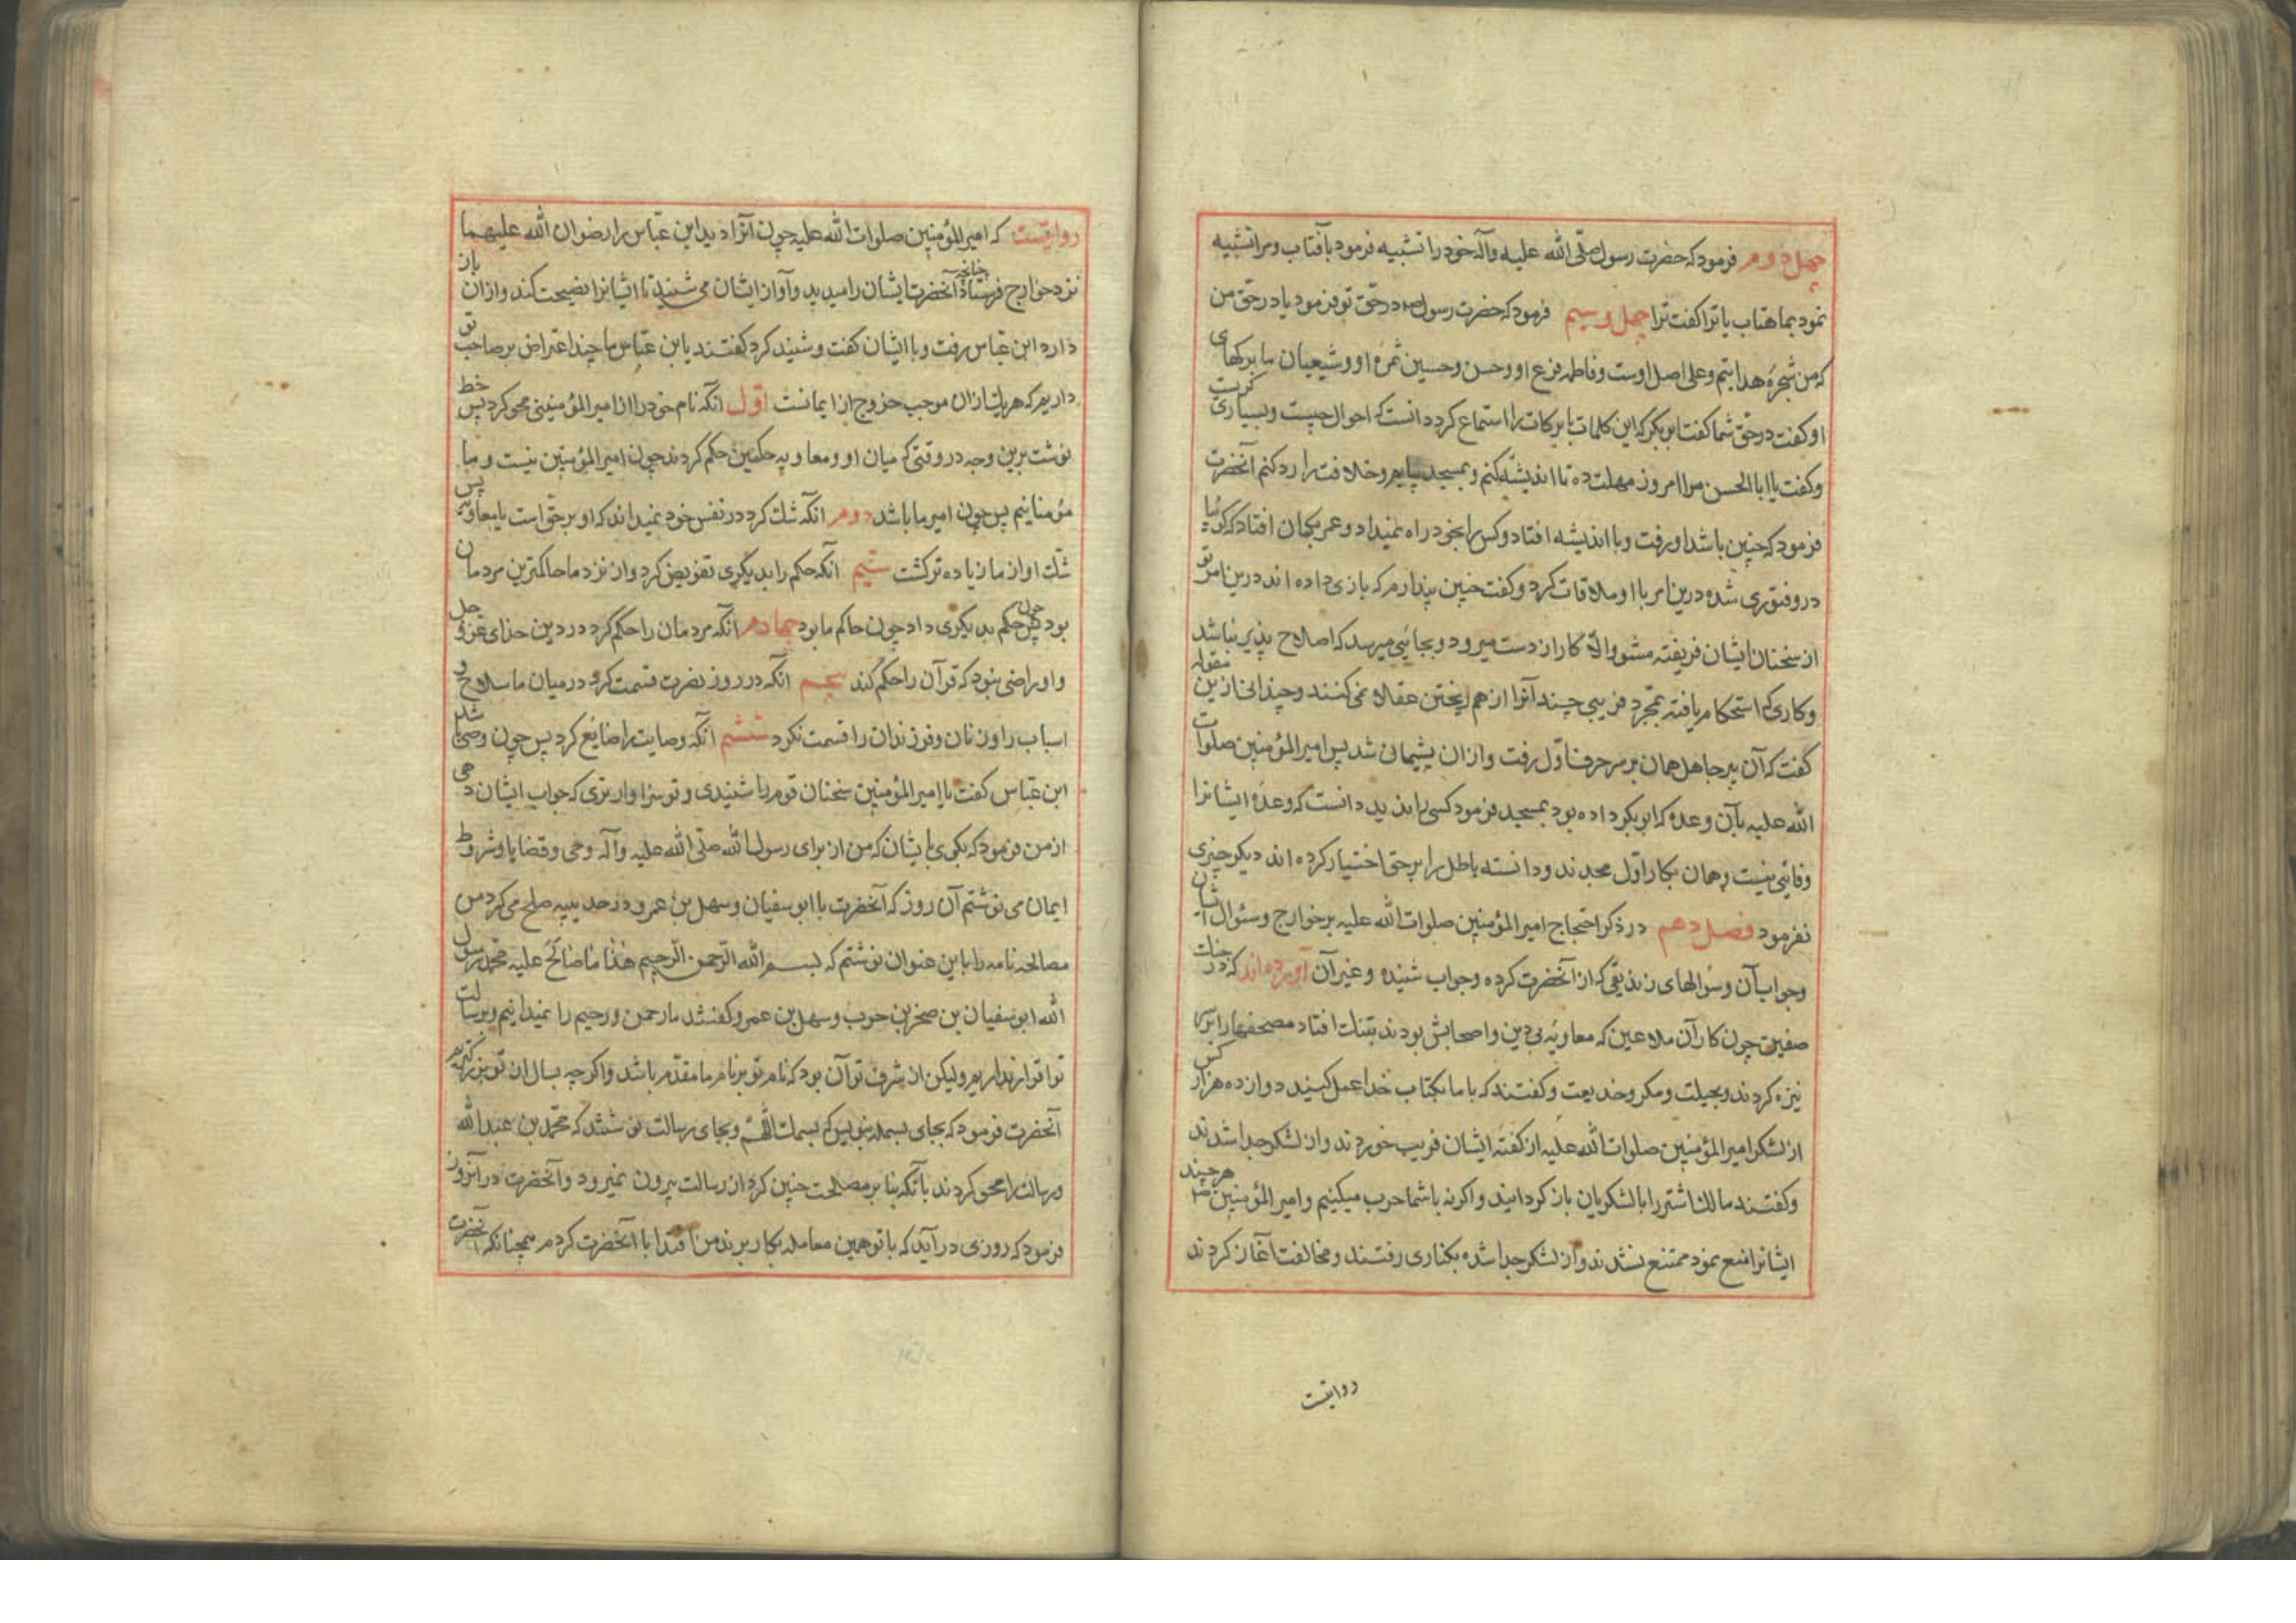 چهل دوم فرمود که حضرت رسول صلّی الله علیه وآله خود را تشبیه فرمود بآفتاب ومرا تشبیه
نمود بماهتاب یا ترا کفت ترا چهل وسیم فرمود که حضرت رسول ص در حقّ تو فرمود یا در حق من
که من شجرهٔ هدایتم وعلی اصل اوست وفاطمه فرع او وحسن وحسین ثمرهٔ او وشیعیان ما برکهای
او کفت در حقّ شما کفت ابوبکر که این کلمات با برکات را استماع کرد دانست که احوال چیست وبسیاری کریست
وکفت یا ابا الحسن مرا امروز مهلت ده تا اندیشه کنم وبمسجد بیایم وخلافت را رد کنم آنحضرت
فرمود که چنین باشد او رفت وبا اندیشه افتاد وکس را بخود راه نمیداد وعمر بکمان افتاد که کویا
در وفتوری شده درین امر با او ملاقات کرد وکفت چنین پندارم که بازی داده اند درین امر تو
از سخنان ایشان فریفته مشو والّا کار از دست میرود وبجائی میرسد که اصلاح پذیر نباشد
وکاری که استحکام یافته بمجرد فریبی چند آنرا از هم ریختن عقلا نمی کنند وچندانی ازین مقوله
کفت که آن پیر جاهل همان بر سر حرف اوّل رفت وازان پشیمان شد پس امیر المؤمنین صلوات
الله علیه بآن وعده که ابوبکر داده بود بمسجد فرمود کسی را ندید دانست که وعدهٔ ایشانرا
وفائی نیست وهمان بکار اوّل مجدند ودانسته باطل را بر حق اختیار کرده اند دیکر چیزی
نفرمود فصل دهم در ذکر احتجاج امیر المؤمنین صلوات الله علیه بر خوارج وسئوال ایشان
وجواب آن وسؤالهای زندیقی که از آنحضرت کرده وجواب شنیده وغیر آن آورده اند که در جنک
صفین چون کار آن ملاعین که معاویهٔ بی دین واصحابش بودند بتنک افتاد مصحفها را بر سر
نیزه کردند وبحیلت ومکر وخدیعت وکفتند که با ما بکتاب خدا عمل کنید دوازده هزار کس
از لشکر امیر المؤمنین صلوات الله علیه از کفتهٔ ایشان فریب خوردند واز لشکر جدا شدند
وکفتند مالک اشتر را با لشکریان باز کردانید واکرنه با شما حرب میکنیم وامیر المؤمنین ص هرچند
ایشانرا منع نمود ممتنع نشدند واز لشکر جدا شده بکناری رفتند ومخالفت آغاز کردند
روایتست
روایتست که امیر المؤمنین صلوات الله علیه چون آنرا دید ابن عبّاس را رضوان الله علیهما
نزد خوارج فرستاد چنانچه آنحضرت ایشان را میدید وآواز ایشان می شنید تا ایشانرا نصیحت کند وازان باز
دارد ابن عبّاس رفت وبا ایشان کفت وشنید کرد کفتند یابن عبّاس ما چند اعتراض بر صاحب تو
داریم که هر یک ازان موجب خروج از ایمانست اوّل آنکه نام خود را از امیر المؤمنینی محو کرد پس خط
نوشت برین وجه در وقتی که میان او ومعاویه حکمین حکم کردند چون امیر المؤمنین نیست وما
مؤمنانیم پس چون امیر ما باشد دوم آنکه شک کرد در نفس خود نمیداند که او بر حقّ است یا معاویه پس
شک او از ما زیاده تر کشت سیّم آنکه حکم را بدیکری تفویض کرد وان نزد ما حاکمترین مردمان
بود چون حکم بدیکری داد چون حاکم ما بود چهارم آنکه مردمان را حکم کرد در دین خدای عزّ وجل
واو راضی نبود که قرآن را حکم کند پنجم آنکه در روز نصرت قسمت کرد در میان ما سلاح و
اسباب را وزنان وفرزندان را قسمت نکرد ششم آنکه وصایت را ضایع کرد پس چون وصی ما باشد
ابن عبّاس کفت یا امیر المؤمنین سخنان قوم را شنیدی وتو سزاوارتری که جواب ایشان دهی
ازمن فرمود که بکوی با یشان که من از برای رسول الله صلّی الله علیه وآله وحی وقضایا وشروط
ایمان می نوشتم آن روز که آنحضرت با ابوسفیان وسهل بن عمرو در حدیبیه صلح می کرد من
مصالحه نامه را باین عنوان نوشتم که بسم الله الرّحمن الرّحیم هذا ما صالح علیه محمّد رسول
الله ابوسفیان بن صخر بن حرب وسهل بن عمرو کفتند ما رحمن ورحیم را نمیدانیم وبرسالت
تو اقرار نداریم ولیکن از شرف تو آن بود که نام تو بر نام ما مقدّم باشد واکرچه بسال از تو بزرکتریم
آنحضرت فرمود که بجای بسمله بنویس که بسمک اللّهمّ وبجای رسالت نوشتند که محمّد بن عبد الله
ورسالت را محو کردند بآنکه بنا بر مصلحت چنین کرد از رسالت بیرون نمیرود وآنحضرت در آنروز
فرمود که روزی در آید که با تو همین معامله بکار برند من اقتدا با آنحضرت کردم همچنانکه آنحضرت